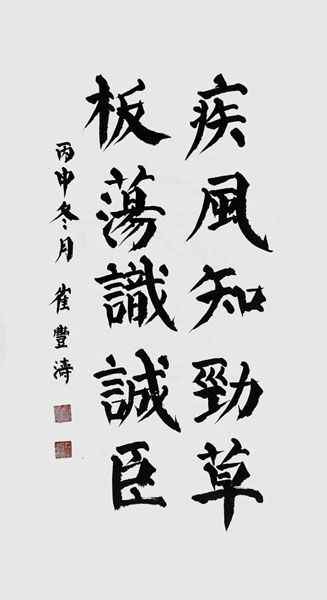 疾風知勁草
板蕩識誠臣
丙申冬月 崔豐濤